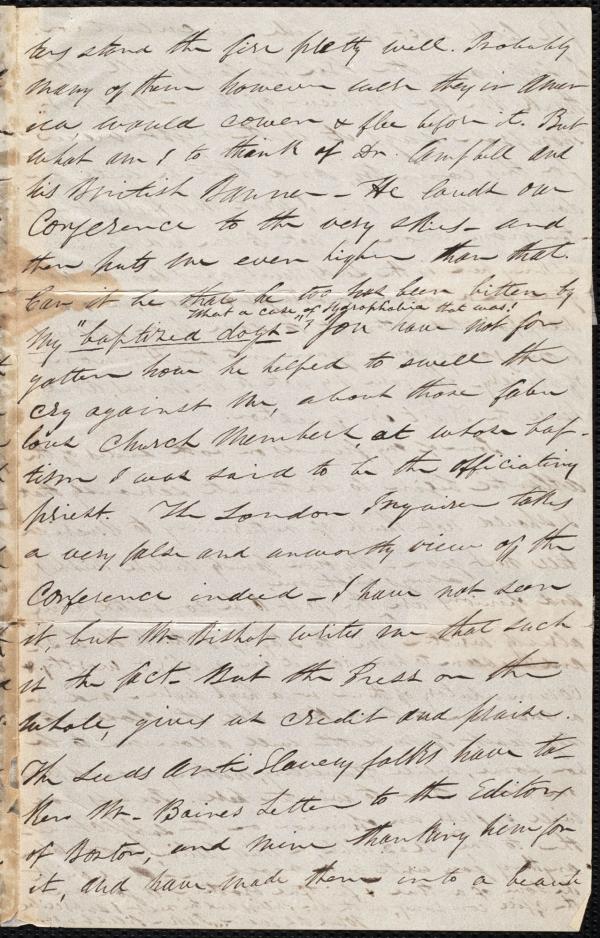 ters stand the fire pretty well. Probably
many of them however were they in Amer
ica, would cower & flee before it. But
what am I to think of Dr. Campbell and
his British Banner - He lauds our
Conference to the very skies - and
then puts me even higher than that.
Can it be that he too has been bitten by
What a case of hydrophobia that was!
my "baptized dogs-"? You have not for
gotten how he helped to swell the
cry against me, about those fabu
lous Church Members, at whose bap-
tism I was said to be the officiating
priest. The London Inquirer takes
a very false and unworthy view of the
Conference indeed - I have not seen
it, but Mr Bishop writes me that such
is the fact - But the Press on the
whole, gives us credit and praise.
The Leeds Anti Slavery folks have ta-
ken Mr - Baines Letter to the Editors
of Boston, and mine thanking him for
it, and have made them into a beauti